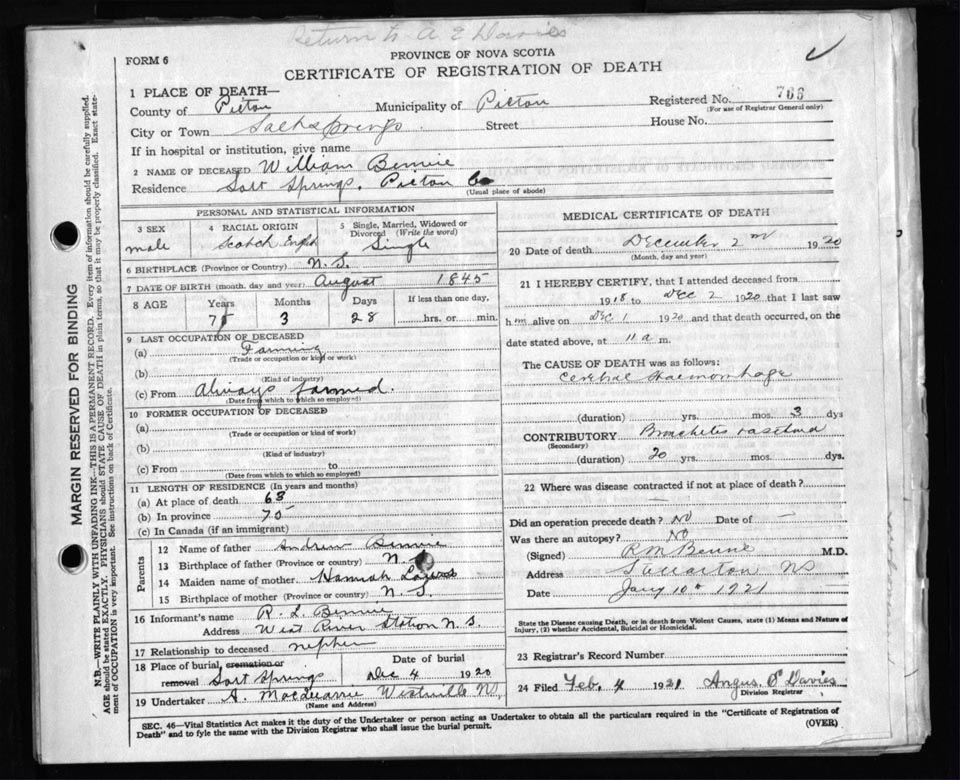 Return to A E Davies
FORM 6
PROVINCE OF NOVA SCOTIA
CERTIFICATE OF REGISTRATION OF DEATH
1 PLACE OF DEATH—
County of Pictou Municipality of Pictou Registered No. 766
(For use of Registrar General only)
City or Town Saltsprings Street House No.
If in hospital or institution, give name
2 NAME OF DECEASED William Bennie
Residence Salt Springs, Pictou Co
(Usual place of abode)
PERSONAL AND STATISTICAL INFORMATION
3 SEX male
4 RACIAL ORIGIN Scotch English
5 Single, Married, Widowed or Divorced (Write the word) Single
6 BIRTHPLACE (Province or Country) N. S.
7 DATE OF BIRTH (month, day and year) August 1845
8 AGE Years Months Days If less than one day,
75 3 28 hrs. or min.
9 LAST OCCUPATION OF DECEASED
(a) Farming
(Trade or occupation or kind of work)
(b)
(Kind of industry)
(c) From Always farmed.
(Date from which to which so employed)
10 FORMER OCCUPATION OF DECEASED
(a)
(Trade or occupation or kind of work)
(b)
(Kind of industry)
(c) From to
(Date from which to which so employed)
11 LENGTH OF RESIDENCE (In years and months)
(a) At place of death 68
(b) In province 75
(c) In Canada (if an immigrant)
Parents
12 Name of father Andrew Bennie
13 Birthplace of father (Province or country) N. S
14 Maiden name of mother Hannah
15 Birthplace of mother (Province or country) N. S.
16 Informant's name R. L. Bennie
Address West River Station N. S.
17 Relationship to deceased nephew
18 Place of burial, cremation or removal Salt Springs Date of burial Dec 4 1920
19 Undertaker A. MacQuarrie Westville NS,
(Name and Address)
MEDICAL CERTIFICATE OF DEATH
20 Date of death December 2nd 1920
(Month, day and year)
21 I HEREBY CERTIFY, that I attended deceased from
1918 to Dec 2 1920 that I last saw
him alive on Dec 1 1920 and that death occurred, on the
date stated above, at 11 a m.
The CAUSE OF DEATH was as follows:
Cerebral Haemorrhage
(duration) yrs. mos. 3 dys
CONTRIBUTORY Bronchitis
(Secondary)
(duration) 20 yrs. mos. dys.
22 Where was disease contracted if not at place of death?
Did an operation precede death? No Date of —
Was there an autopsy? No
(Signed) R M Benvie M.D.
Address Stellarton NS
Date Jany 10th 1921
State the Disease causing Death, or in death from Violent Causes, state (1) Means and Nature of
Injury, (2) whether Accidental, Suicidal or Homicidal.
23 Registrar's Record Number
24 Filed Feb. 4 1921 Angus E Davies
Division Registrar
SEC. 46—Vital Statistics Act makes it the duty of the Undertaker or person acting as Undertaker to obtain all the particulars required in the "Certificate of Registration of
Death" and to fyle the same with the Division Registrar who shall issue the burial permit.
(OVER)
MARGIN RESERVED FOR BINDING
N.B.—WRITE PLAINLY WITH UNFADING INK—THIS IS A PERMANENT RECORD. Every item of information should be carefully supplied.
AGE should be stated EXACTLY. PHYSICIANS should STATE CAUSE OF DEATH in plain terms, so that it may be properly classified. Exact statement
of OCCUPATION is very important. See instructions on back of Certificate.